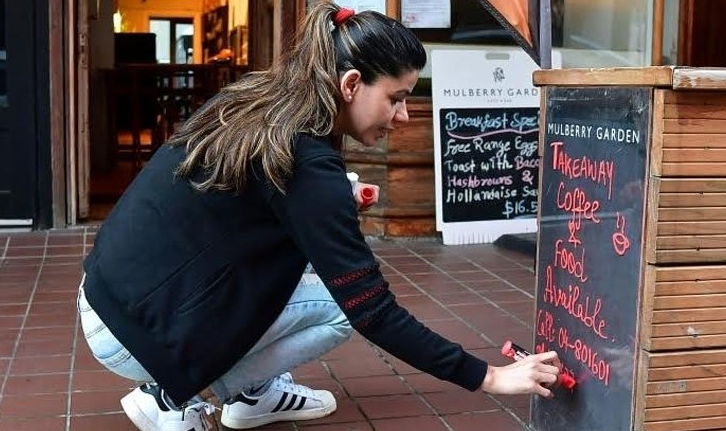 MULBERRY GARD
Breakfast Spe
Free Range Eggs
Toast with Bac
Hashbrowns &
Hollandaise Sa
$16.5
MULBERRY GARDEN
TAKEAWAY
Coffee
&
Food
Available.
Call: 04-801601